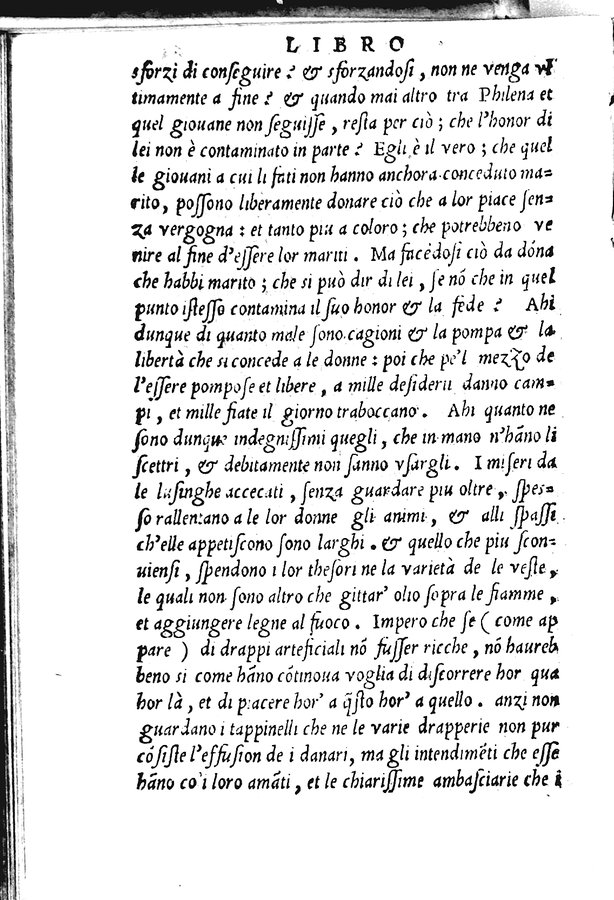 LIBRO
sforzi di conseguire ? & sforzandosi, non ne venga vl
timamente a fine ? & quando mai altro tra Philena et
quel giouane non seguisse, resta per ciò; che l'honor di
lei non è contaminato in parte ? Egli è il vero; che quel
le giouani a cui li fati non hanno anchora conceduto ma=
rito, possono liberamente donare ciò che a lor piace sen=
za vergogna: et tanto piu a coloro; che potrebbeno ve
nire al fine d'essere lor mariti. Ma facēdosi ciò da dōna
che habbi marito; che si può dir di lei, se nō che in quel
punto istesso contamina il suo honor & la fede ? Ahi
dunque di quanto male sono cagioni & la pompa & la
libertà che si concede a le donne: poi che pe'l mezzo de
l'essere pompose et libere, a mille desiderii danno cam=
pi, et mille fiate il giorno traboccano. Ahi quanto ne
sono dunque indegnissimi quegli, che in mano n'hāno li
scettri, & debitamente non sanno vsargli. I miseri da
le lusinghe accecati, senza guardare piu oltre, spes=
so rallentano a le lor donne gli animi, & alli spassi
ch'elle appetiscono sono larghi. & quello che piu scon=
uiensi, spendono i lor thesori ne la varietà de le veste,
le quali non sono altro che gittar' olio sopra le fiamme,
et aggiungere legne al fuoco. Impero che se ( come ap
pare ) di drappi arteficiali nō fusser ricche, nō haureb
beno si come hāno cōtinoua voglia di discorrere hor qua
hor là, et di piacere hor' a q̄sto hor' a quello. anzi non
guardano i tappinelli che ne le varie drapperie non pur
cōsiste l'effusion de i danari, ma gli intendimēti che esse
hāno co i loro amāti, et le chiarissime ambasciarie che i